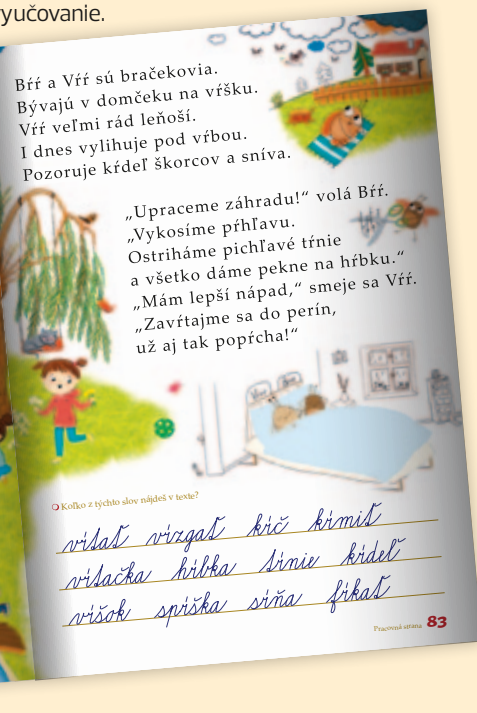 yučovanie.
Bŕŕ a Vŕŕ sú bračekovia.
Bývajú v domčeku na vŕšku.
Vŕŕ veľmi rád leňoší.
I dnes vylihuje pod vŕbou.
Pozoruje kŕdeľ škorcov a sníva.
„Upraceme záhradu!“ volá Bŕŕ.
„Vykosíme pŕhľavu.
Ostriháme pichľavé tŕnie
a všetko dáme pekne na hŕbku.“
„Mám lepší nápad,“ smeje sa Vŕŕ.
„Zavŕtajme sa do perín,
už aj tak popŕcha!“
Koľko z týchto slov nájdeš v texte?
vŕtať vŕzgať kŕč kŕmiť
vŕtačka hŕbka tŕnie kŕdeľ
vŕšok spŕška sŕňa fŕkať
Pracovná strana 83